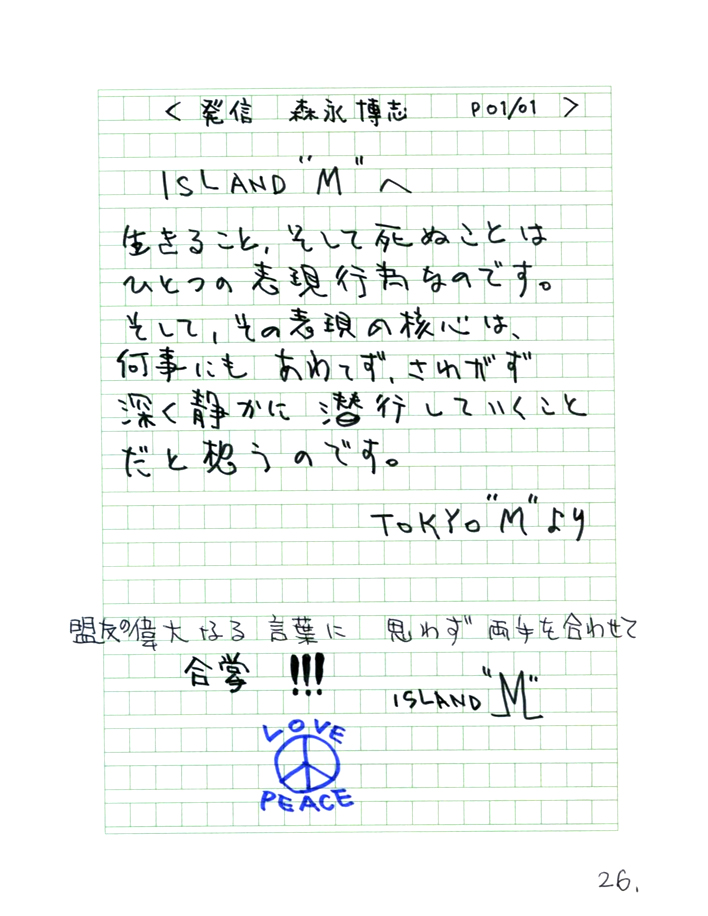 < 発信 森永博志 P01/01 >
ISLAND "M" へ
生きること, そして死ぬことは
ひとつの表現行為なのです。
そして, その表現の核心は、
何事にも あわてず, さわがず
深く静かに 潜行していくこと
だと想うのです。
TOKYO "M" より
盟友の偉大なる 言葉に 思わず 両手を合わせて
合掌 !!!
ISLAND "M"
LOVE
PEACE
26.